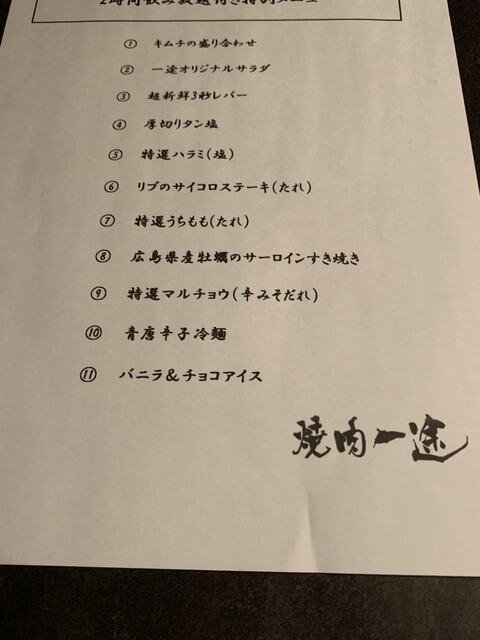 2時間飲み放題付き特別メニュー
① キムチの盛り合わせ
② 一途オリジナルサラダ
③ 超新鮮3秒レバー
④ 厚切りタン塩
⑤ 特選ハラミ(塩)
⑥ リブのサイコロステーキ(たれ)
⑦ 特選うちもも(たれ)
⑧ 広島県産牡蠣のサーロインすき焼き
⑨ 特選マルチョウ(辛みそだれ)
⑩ 青唐辛子冷麺
⑪ バニラ&チョコアイス
焼肉一途